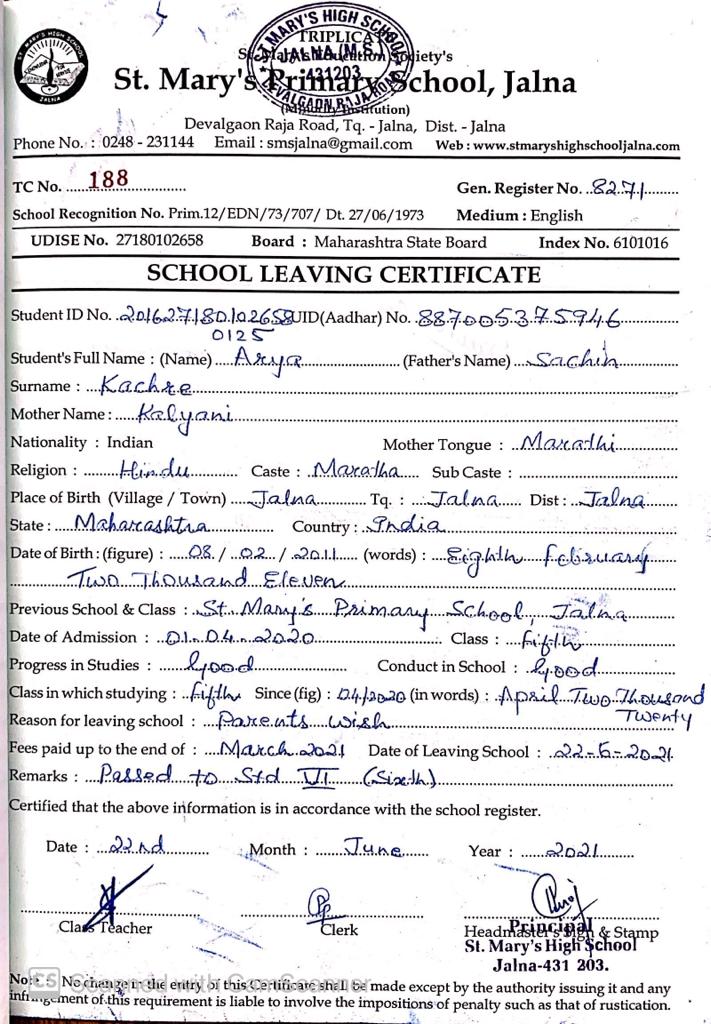 ST. MARY'S HIGH SCHOOL
JALNA
ST. MARY'S HIGH SCHOOL
JALNA (M.S.)
431203
DEVALGAON RAJA ROAD
TRIPLICATE
St. Mary's Education Society's
St. Mary's Primary School, Jalna
(Minority Institution)
Devalgaon Raja Road, Tq. - Jalna, Dist. - Jalna
Phone No. : 0248 - 231144 Email : smsjalna@gmail.com Web : www.stmaryshighschooljalna.com
TC No. 188 Gen. Register No. 8271
School Recognition No. Prim.12/EDN/73/707/ Dt. 27/06/1973 Medium : English
UDISE No. 27180102658 Board : Maharashtra State Board Index No. 6101016
SCHOOL LEAVING CERTIFICATE
Student ID No. 201627180102658 UID(Aadhar) No. 887005375946
0125
Student's Full Name : (Name) Arya (Father's Name) Sachin
Surname : Kachre
Mother Name : Kalyani
Nationality : Indian Mother Tongue : Marathi
Religion : Hindu Caste : Maratha Sub Caste :
Place of Birth (Village / Town) Jalna Tq. : Jalna Dist : Jalna
State : Maharashtra Country : India
Date of Birth : (figure) : 08 / 02 / 2011 (words) : Eighth February
Two Thousand Eleven
Previous School & Class : St. Mary's Primary School, Jalna
Date of Admission : 01-04-2020 Class : Fifth
Progress in Studies : Good Conduct in School : Good
Class in which studying : Fifth Since (fig) : 04/2020 (in words) : April Two Thousand
Twenty
Reason for leaving school : Parents wish
Fees paid up to the end of : March 2021 Date of Leaving School : 22-6-2021
Remarks : Passed to Std VI (Sixth)
Certified that the above information is in accordance with the school register.
Date : 22nd Month : June Year : 2021
Class Teacher Clerk Headmaster's Sign & Stamp
Principal
St. Mary's High School
Jalna-431 203.
Note : No change in the entry of this Certificate shall be made except by the authority issuing it and any
infringement of this requirement is liable to involve the impositions of penalty such as that of rustication.
CS Scanned with CamScanner